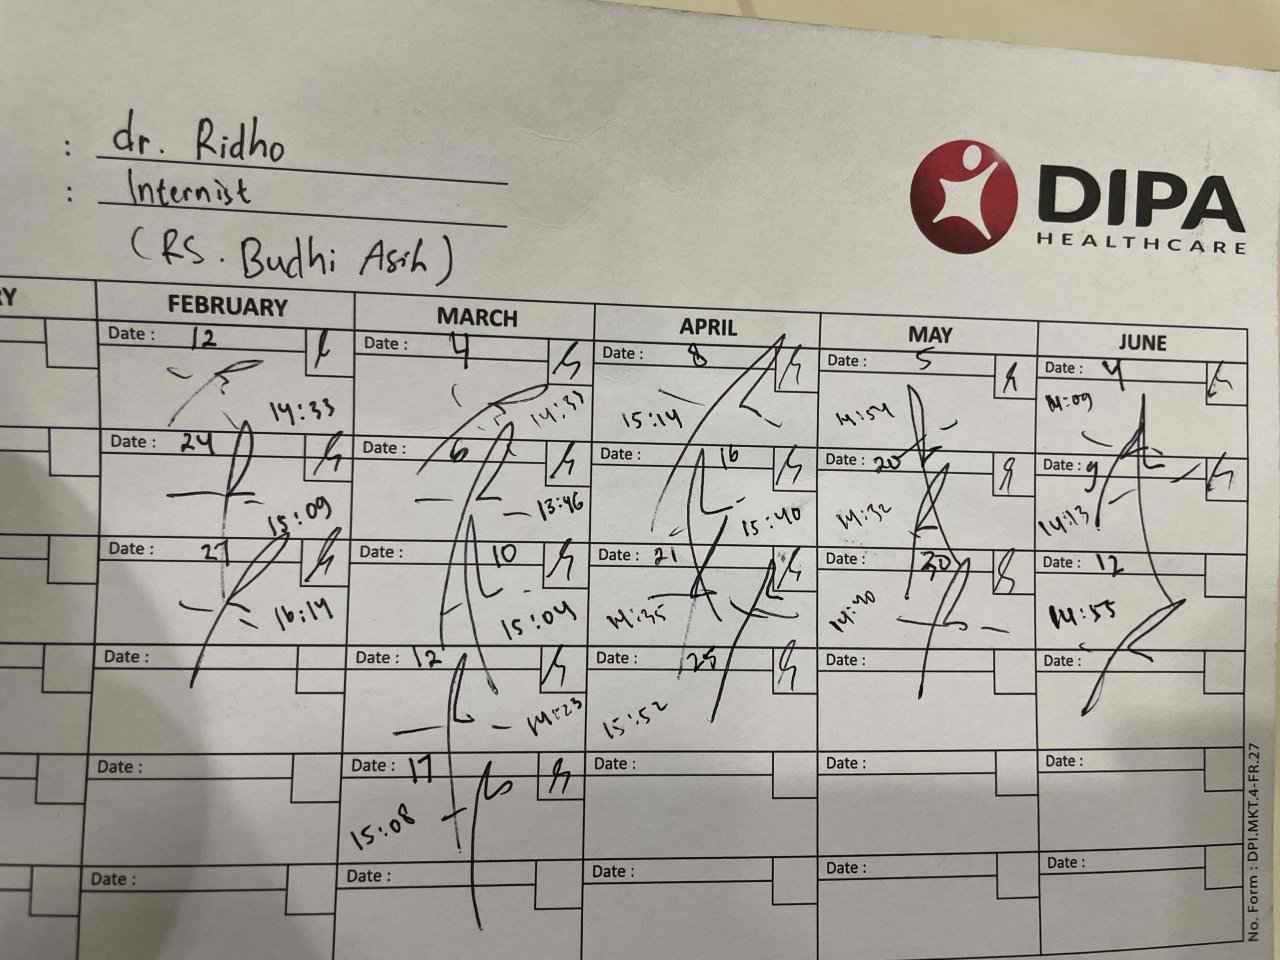 : dr. Ridho
: Internist
(RS. Budhi Asih)
DIPA
HEALTHCARE
RY FEBRUARY MARCH APRIL MAY JUNE
Date : 12 Date : 4 Date : 8 Date : 5 Date : 4
14:33 14:33 15:14 14:54 14:09
Date : 24 Date : 6 Date : 16 Date : 20 Date : 9
15:09 13:46 15:40 14:32 14:13
Date : 27 Date : 10 Date : 21 Date : 30 Date : 12
16:14 15:04 14:35 14:40 14:55
Date : Date : 12 Date : 25 Date : Date :
14:23 15:52
Date : Date : 17 Date : Date : Date :
15:08
Date : Date : Date : Date : Date :
No. Form : DPI.MKT.4-FR.27